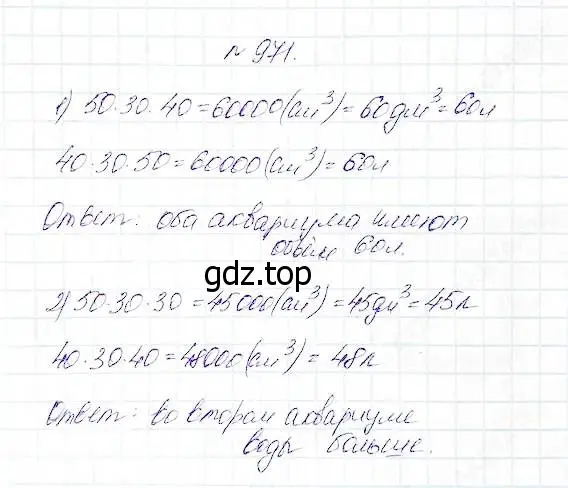 № 971.
1) 50·30·40=60000(см³)=60дм³=60л
40·30·50=60000(см³)=60л
Ответ: оба аквариума имеют
объём 60л.
gdz.top
2) 50·30·30=45000(см³)=45дм³=45л
40·30·40=48000(см³)=48л
Ответ: во втором аквариуме
воды больше.